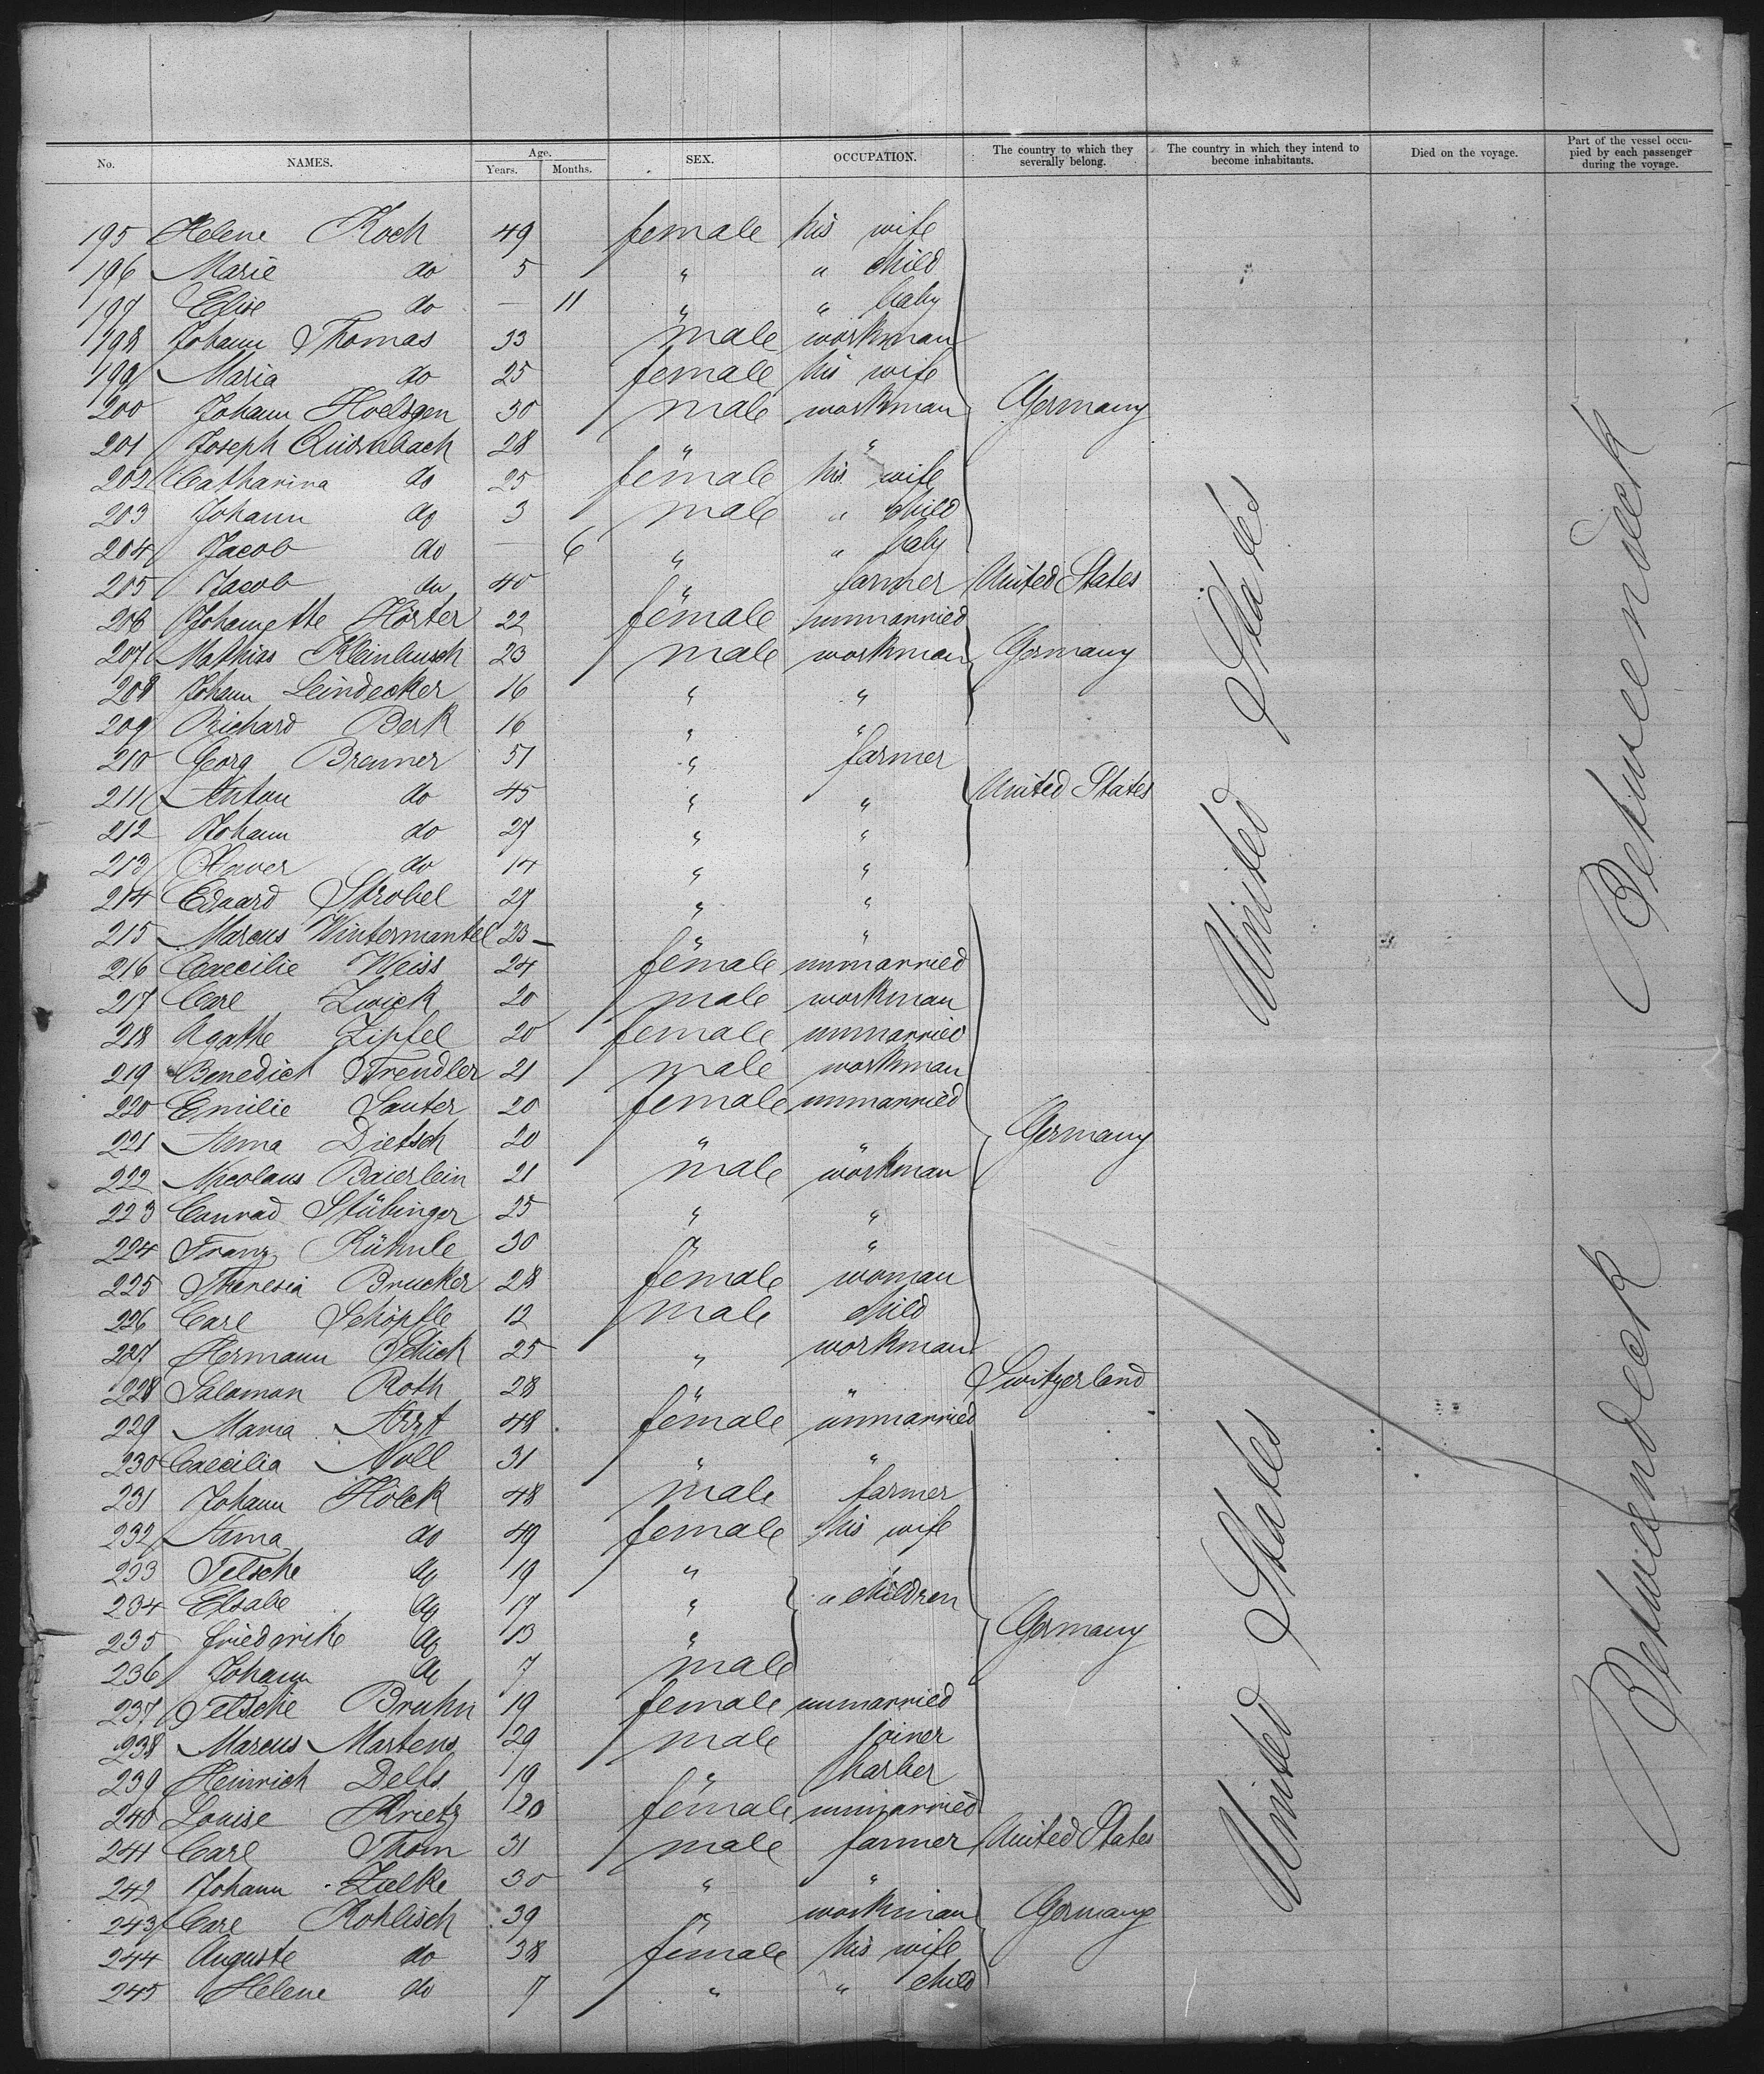 No. NAMES. Age. Years. Months. SEX. OCCUPATION. The country to which they severally belong. The country in which they intend to become inhabitants. Died on the voyage. Part of the vessel occupied by each passenger during the voyage.
195 Helene Koch 49 female his wife
196 Marie do 5 " " child
197 Elise do — 11 " " baby
198 Johann Thomas 33 male workman
199 Maria do 25 female his wife
200 Johann Hoelsgen 30 male workman Germany
201 Joseph Quirnbach 28 " "
202 Catharina do 25 female his wife
203 Johann do 3 male " child
204 Jacob do — 6 " " baby
205 Jacob do 40 " farmer United States
206 Johannette Hörster 22 female unmarried
207 Mathias Kleinbusch 23 male workman Germany
208 Johann Leindecker 16 " "
209 Richard Berk 16 " "
210 Georg Brenner 51 " farmer
211 Anton do 45 " " United States
212 Johann do 27 " "
213 Xaver do 14 " "
214 Eduard Strobel 27 " "
215 Marcus Wintermantel 23 — " "
216 Caecilie Weiss 24 female unmarried
217 Carl Zwick 20 male workman
218 Agathe Zipfel 20 female unmarried
219 Benedict Trendler 21 male workman
220 Emilie Sauter 20 female unmarried
221 Anna Dietsch 20 " " Germany
222 Nicolaus Baierlein 21 male workman
223 Conrad Stübinger 25 " "
224 Franz Kühnle 30 " "
225 Theresia Brucker 28 female woman
226 Carl Schöpfle 12 male child
227 Hermann 25 " workman
228 Salomon Roth 28 " " Switzerland
229 Maria Arzt 48 female unmarried
230 Caecilia Noll 31 " "
231 Johann Hölck 48 male farmer
232 Anna do 49 female his wife
233 Telsche do 19 "
234 Elsabe do 17 " " children
235 Friederike do 13 " Germany
236 Johann do 7 male
237 Telsche Bruhn 19 female unmarried
238 Marcus Martens 29 male joiner
239 Heinrich Delfs 19 " barber
240 Louise Krietz 20 female unmarried
241 Carl Thom 31 male farmer United States
242 Johann Zielke 30 " "
243 Carl Kohlisch 39 " workman Germany
244 Auguste do 38 female his wife
245 Helene do 7 " " child
United States
United States
Betweendeck
Betweendeck